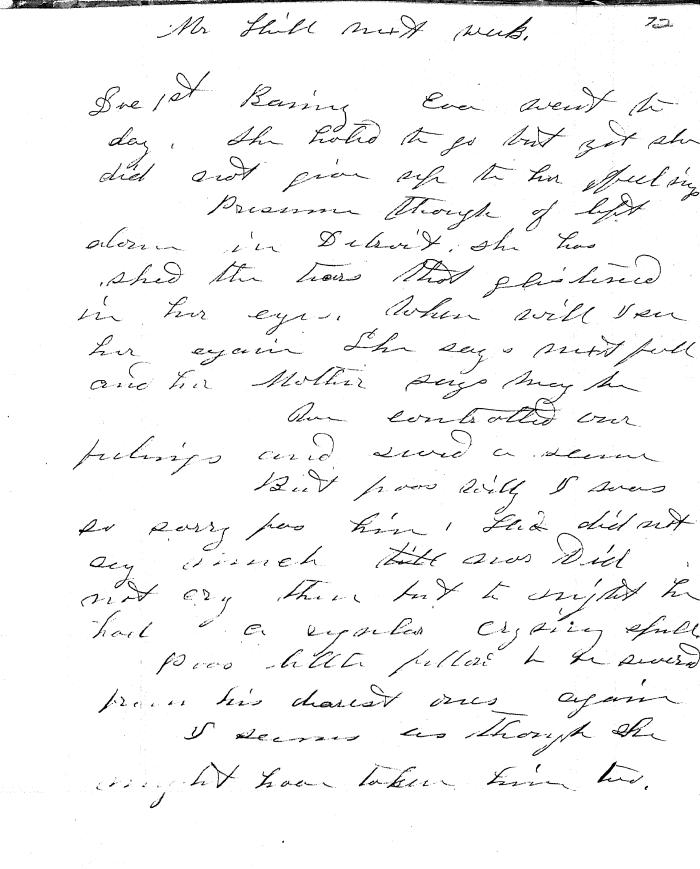 Mr Shill next week. 72
Dec 1st Raining Eva went to
day. She hated to go but yet she
did not give up to her feelings
Presume though if left
alone in Detroit. she has
shed the tears that glistened
in her eyes. When will I see
her again She says next fall
and her Mother says may be
We controlled our
feelings and saved a scene
But poor Willy I was
so sorry for him. did not
cry much till noon Did
not cry then but to night he
had a regular crysing spell
Poor little fellow to be severed
from his dearest ones again
I seems as though she
might have taken him two.